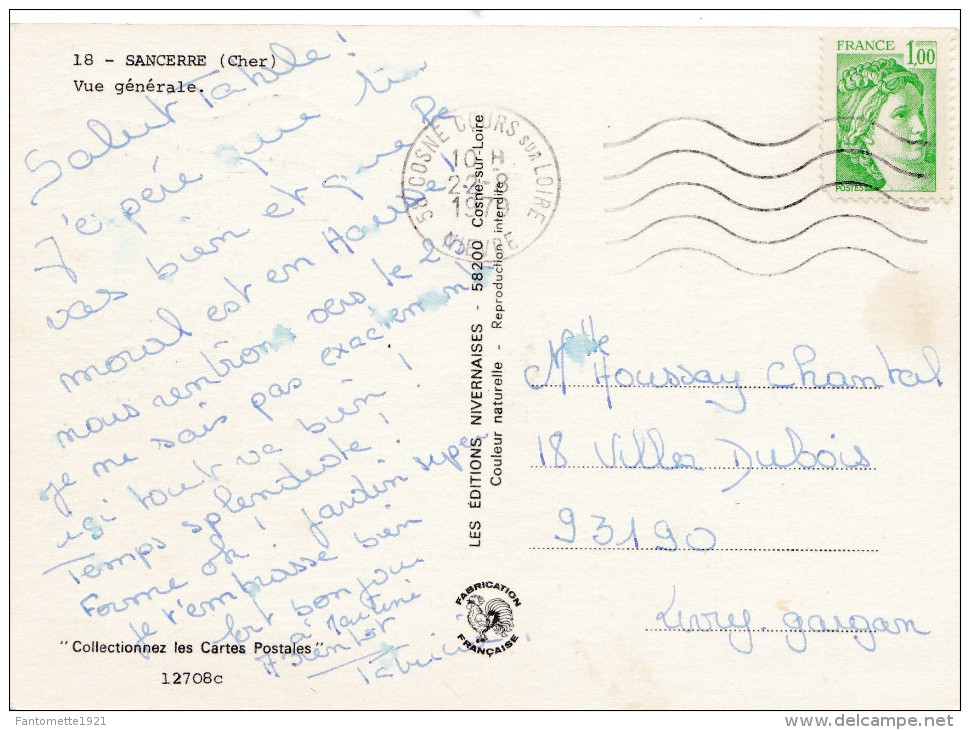 18 - SANCERRE (Cher)
Vue générale.
Salut Table !
J'éspére que tu
vas bien et que le
moral est en Hausse !
nous rentrons vers le 2
je ne sais pas exactement
ici tout va bien !
Temps splendide !
Forme ok ! jardin super
je t'embrasse bien
fort bonjour
à Martine
A Bientôt
"Collectionnez les Cartes Postales"
12708c
LES ÉDITIONS NIVERNAISES - 58200 Cosne-sur-Loire
Couleur naturelle - Reproduction interdite
FABRICATION
FRANÇAISE
58 COSNE COURS sur LOIRE
10 H
22-8
1979
NIEVRE
FRANCE
1,00
POSTES
Melle Houssay Chantal
18 Villa Dubois
93190
Livry-gargan
Fantomette1921
delcampe.net